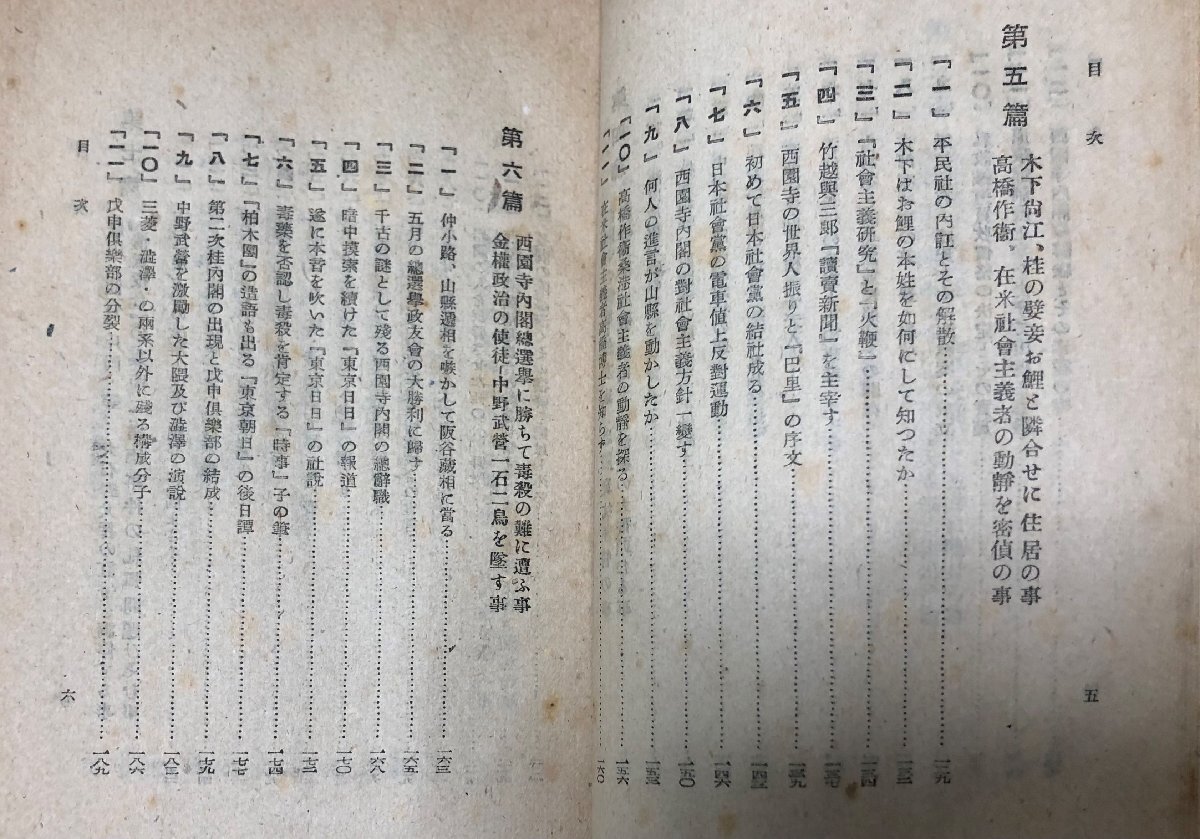 目次
第五篇
木下尙江、桂の嬖妾お鯉と隣合せに住居の事
高橋作衞。在米社會主義者の動靜を密偵の事
「一」 平民社の內訌とその解散 一二九
「二」 木下はお鯉の本姓を如何にして知つたか 一三一
「三」 『社會主義硏究』と『火鞭』 一三四
「四」 竹越與三郞『讀賣新聞』を主宰す 一三七
「五」 西園寺の世界人振りと『巴里』の序文 一三九
「六」 初めて日本社會黨の結社成る
「七」 日本社會黨の電車値上反對運動 一四六
「八」 西園寺內閣の對社會主義方針一變す 一五〇
「九」 何人の進言が山縣を動かしたか
「一〇」 高橋作衞桑港社會主義者の動靜を探る 一五六
「一一」 在米社會主義者高橋博士を 一六〇
五
第六篇
西園寺內閣總選擧に勝ちて毒殺の難に遭ふ事
金權政治の使徒―中野武營一石二鳥を墜す事
「一」 仲小路、山縣遞相を嗾かして阪谷藏相に當る
「二」 五月の總選擧政友會の大勝利に歸す
「三」 千古の謎として殘る西園寺內閣の總辭職 一六八
「四」 暗中摸索を續けた『東京日日』の報道 一七〇
「五」 遂に本音を吹いた『東京日日』の社說
「六」 毒藥を否認し毒殺を肯定する『時事』子の筆 一七四
「七」 『柏木團』の造語も出る『東京朝日』の後日譚 一七七
「八」 第二次桂內閣の出現と戊申俱樂部の結成 一七九
「九」 中野武營を激勵した大隈及び澁澤の演說
「一〇」 三菱・澁澤・の兩系以外に殘る構成分子 一八六
「一一」 戊申俱樂部の分裂 一八九
目次
六